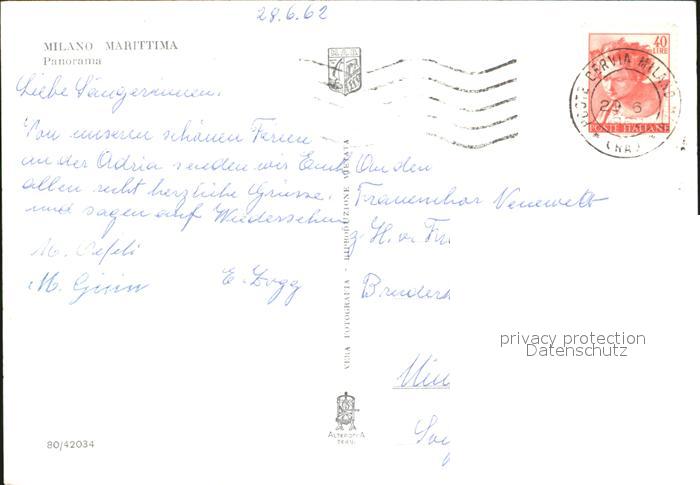 28.6.62
MILANO MARITTIMA
Panorama
Liebe Sängerinnen.
Von unseren schönen Ferien
an der Adria senden wir Euch
allen recht herzliche Grüsse.
und sagen auf Wiedersehn
M.
M.
E. Zogg
VERA FOTOGRAFIA - RIPRODUZIONE VIETATA
ALTEROCCA
TERNI
80/42034
40
LIRE
POSTE ITALIANE
POSTE CERVIA MILANO
29 6
(RA)
An den
Frauenchor Neuewelt
z. H. v. Fr
Brudere
privacy protection
Datenschutz